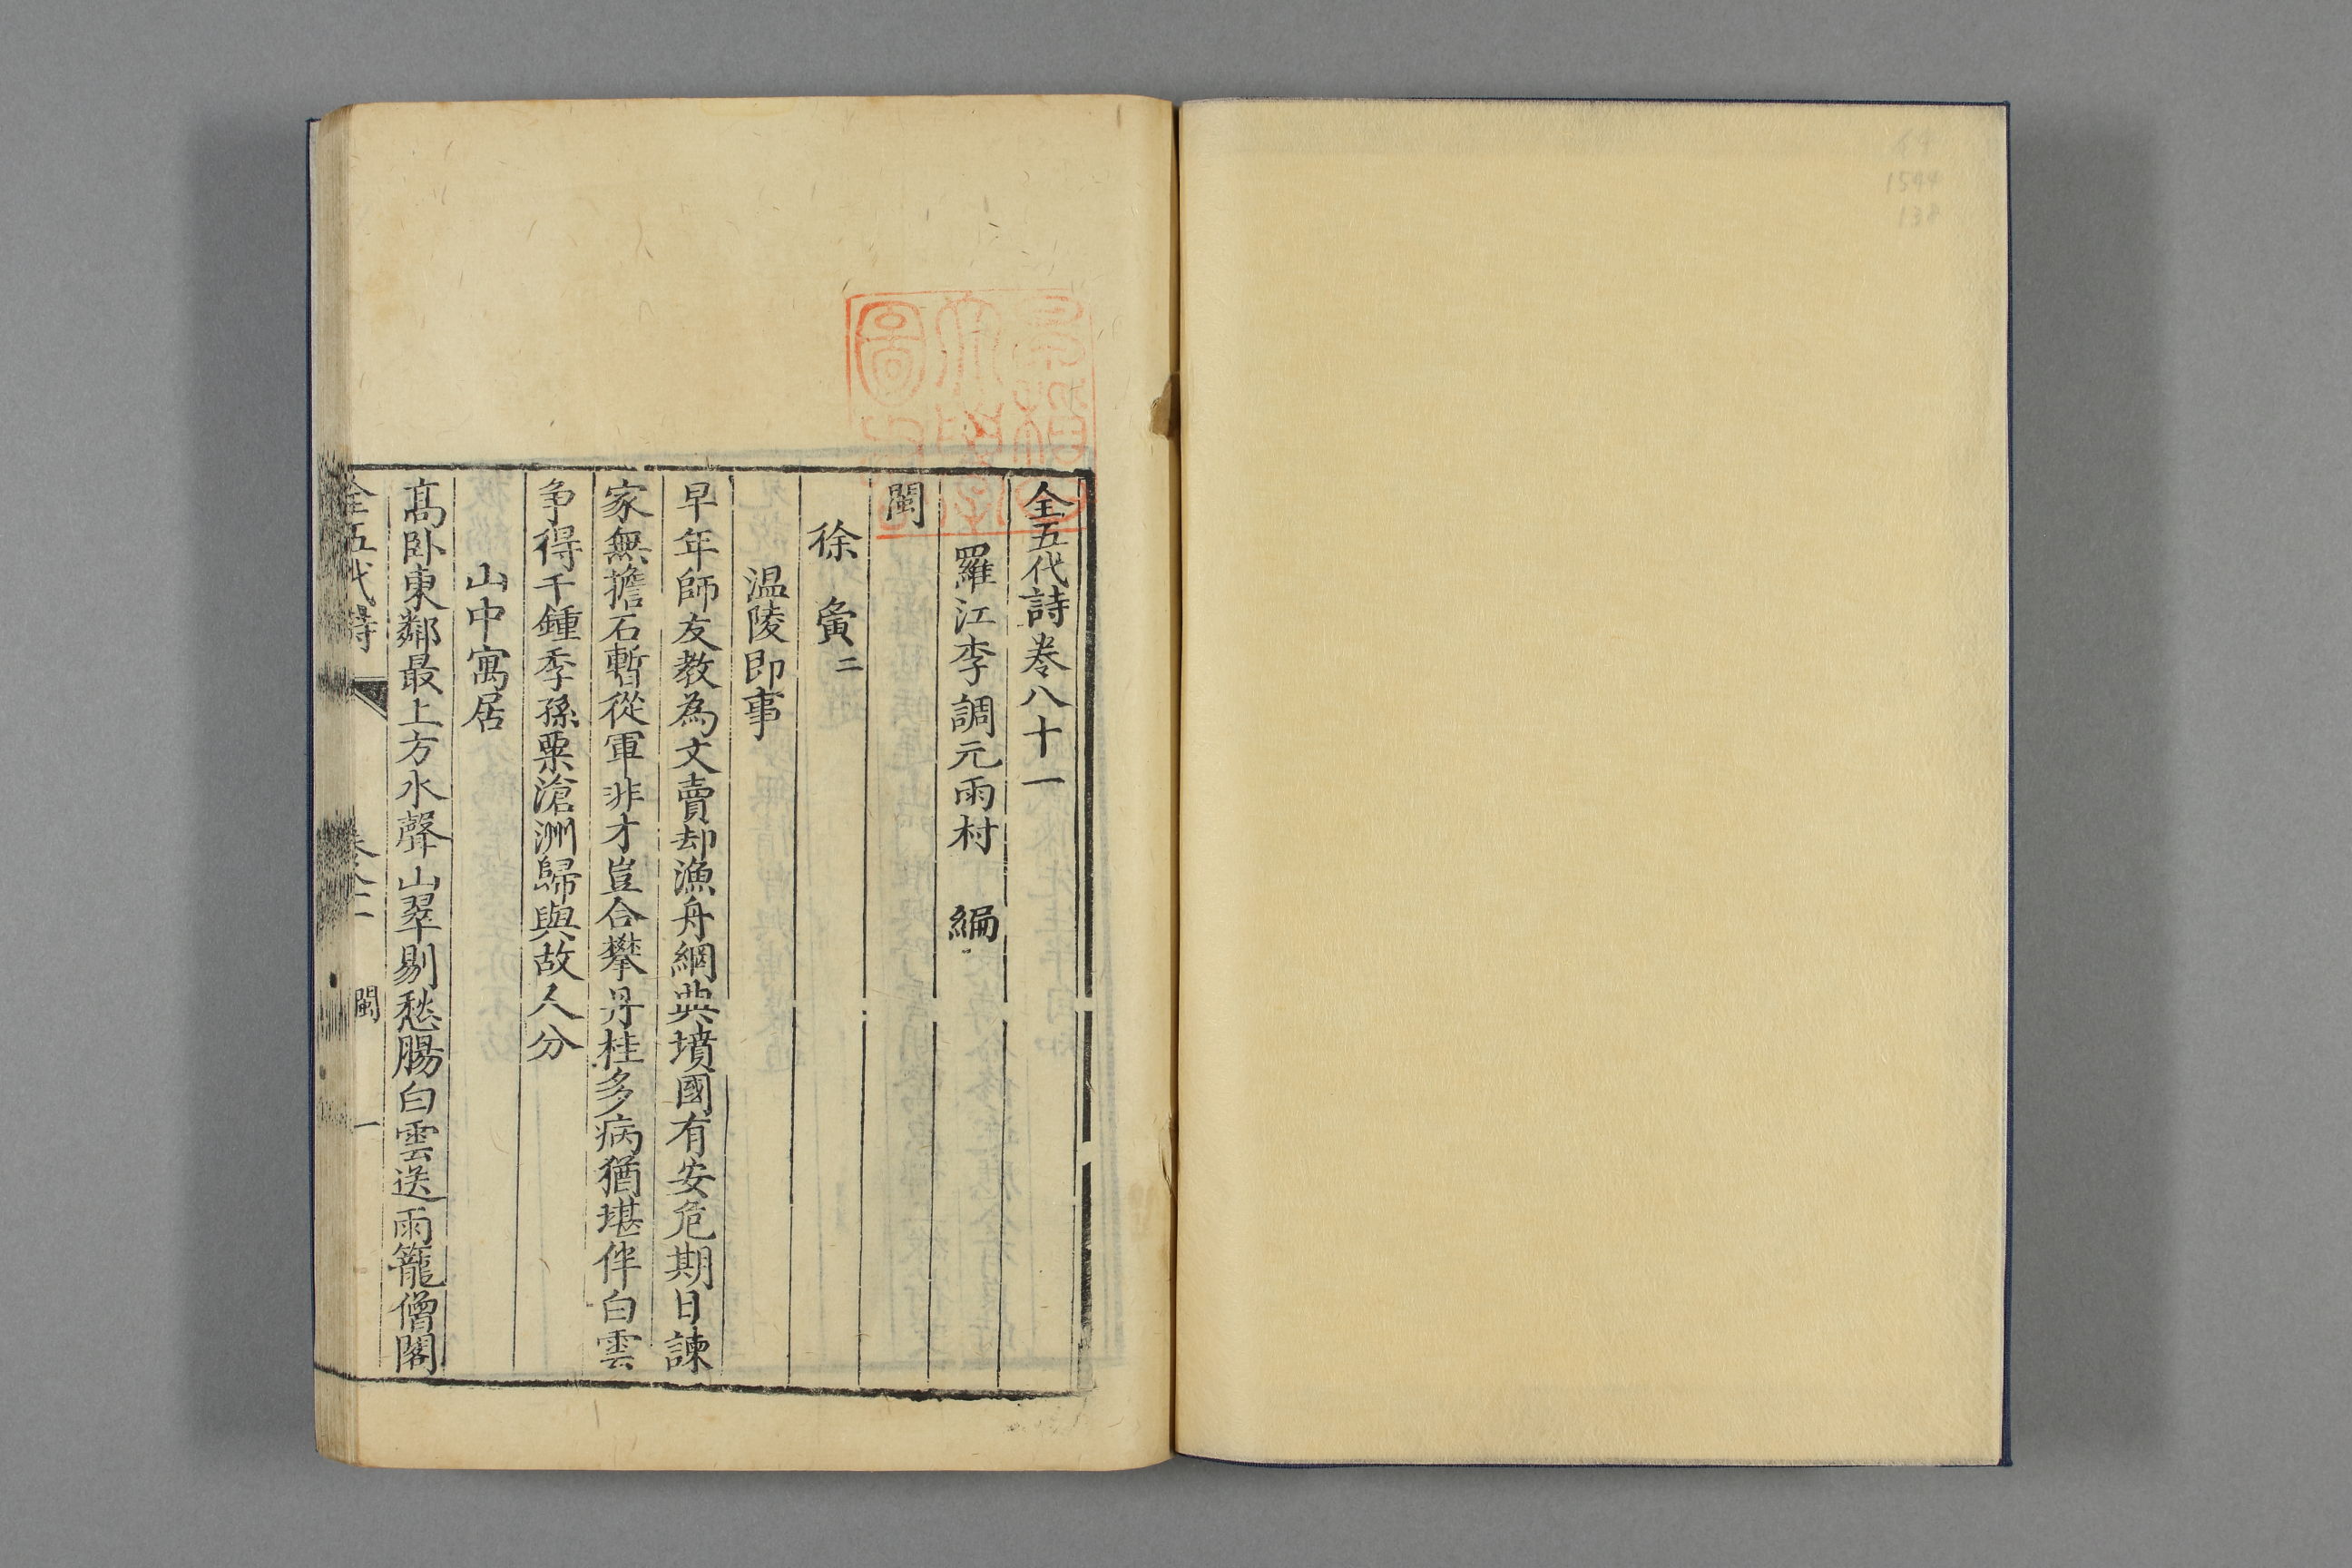 全五代詩卷八十一
羅江李調元雨村 編
閩
徐 夤二
温陵即事
早年師友教為文賣却漁舟網典墳國有安危期日諫
家無擔石暫從軍非才豈合攀丹桂多病猶堪伴白雲
争得千鍾季孫粟滄洲歸與故人分
山中寓居
高卧東鄰最上方水聲山翠剔愁腸白雲送雨籠僧閣
全五代詩 卷八十一 閩 一